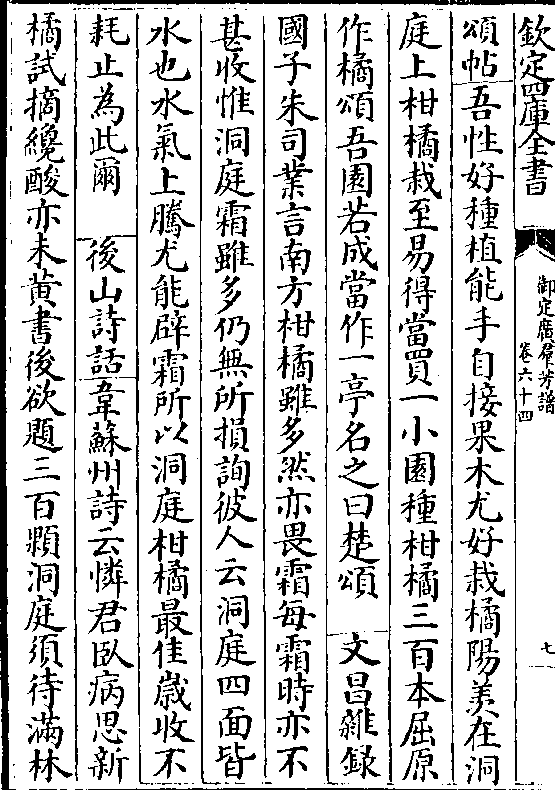 欽定四庫全書
御定廣群芳譜
卷六十四
七
頌帖吾性好種植能手自接果木尤好栽橘陽羨在洞
庭上柑橘栽至易得當買一小園種柑橘三百本屈原
作橘頌吾園若成當作一亭名之曰楚頌 文昌雜錄
國子朱司業言南方柑橘雖多然亦畏霜每霜時亦不
甚收惟洞庭霜雖多仍無所損詢彼人云洞庭四面皆
水也水氣上騰尤能辟霜所以洞庭柑橘最佳歲收不
耗止為此爾 後山詩話韋蘇州詩云憐君臥病思新
橘試摘纔酸亦未黃書後欲題三百顆洞庭須待滿林